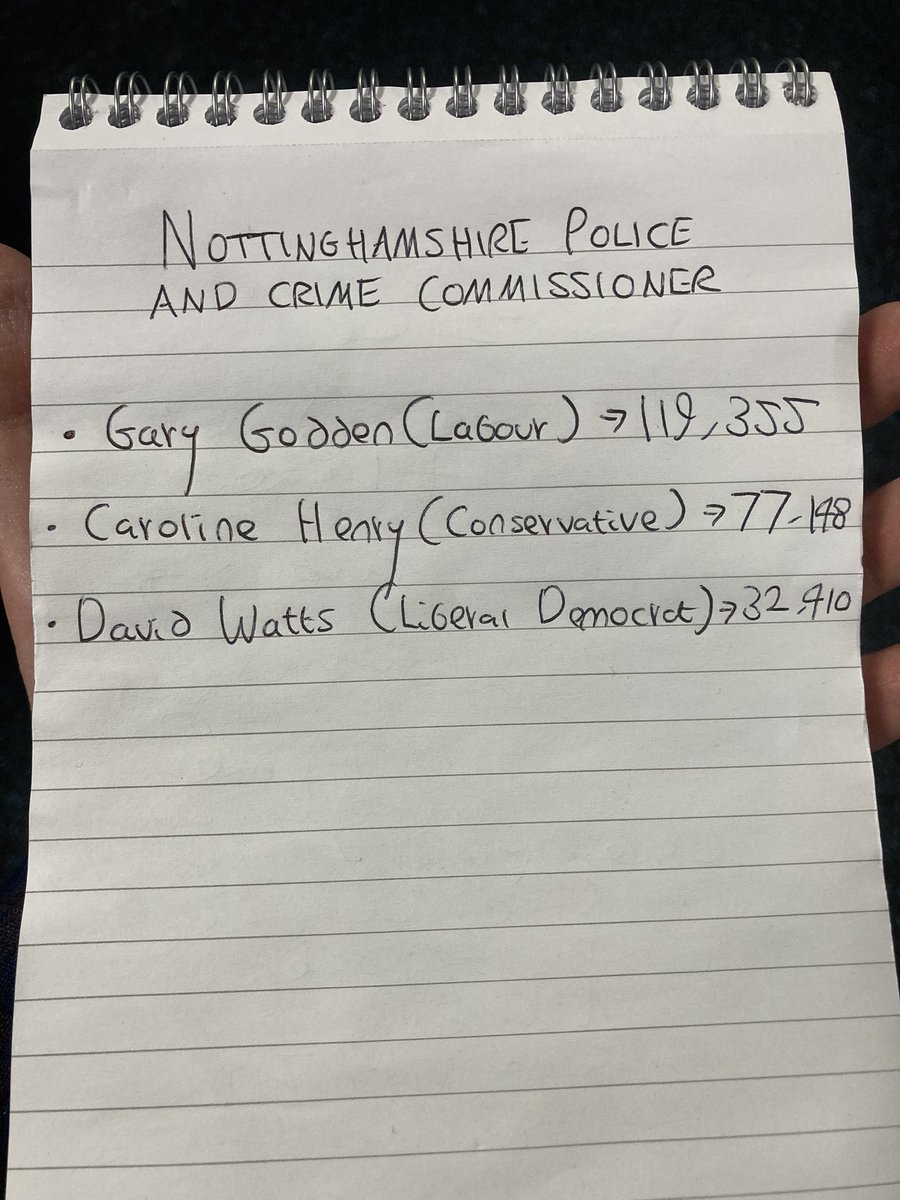 NOTTINGHAMSHIRE POLICE
AND CRIME COMMISSIONER
· Gary Godden (Labour) → 119,355
· Caroline Henry (Conservative) → 77,148
· David Watts (Liberal Democrat) → 32,410